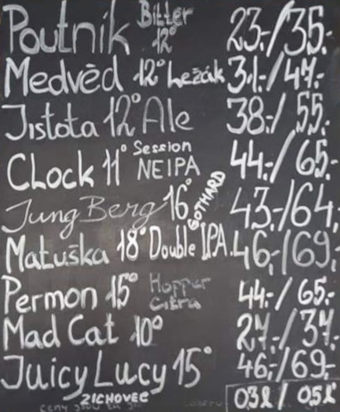 Poutník Bitter 12° 23,-/35,-
Medvěd 12° Ležák 31,-/47,-
Jistota 12° Ale 38,-/55,-
CLock 11° Session NEIPA 44,-/65,-
Jung Berg 16° GOTHARD 43,-/64,-
Matuška 18° Double IPA 46,-/69,-
Permon 15° Hopper Citra 44,-/65,-
Mad Cat 10° 27,-/37,-
Juicy Lucy 15° 46,-/69,-
ZICHOVEC 0,3 l / 0,5 l